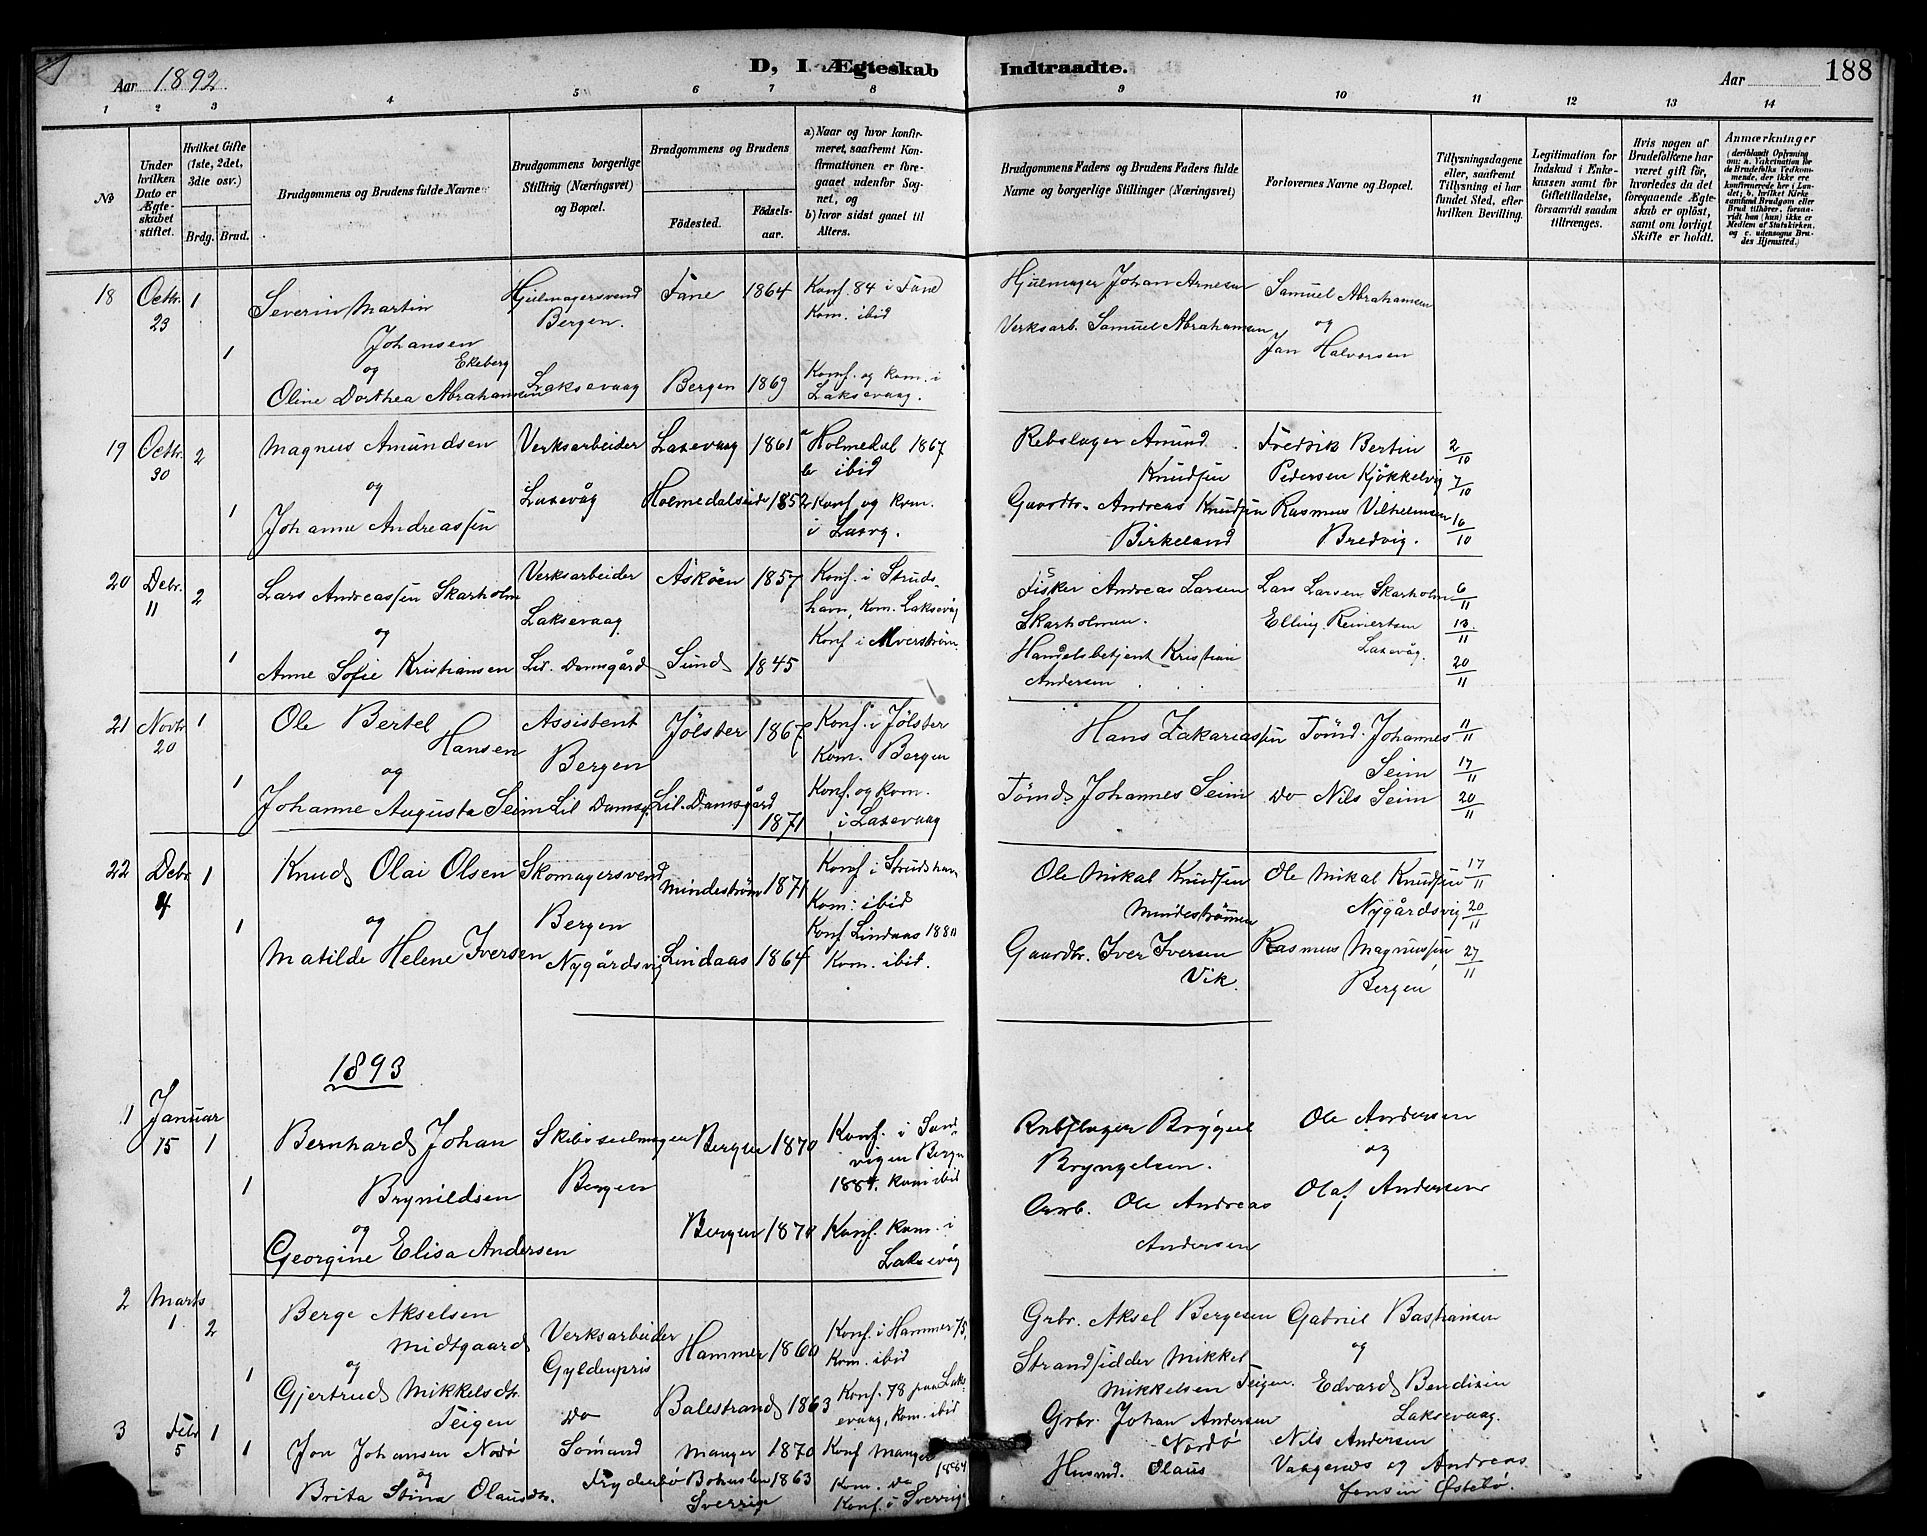 Aar 1892
D, I Ægteskab Indtraadte.
Aar
188
1 2 3 4 5 6 7 8 9 10 11 12 13 14
No
Under hvilken Dato er Ægteskabet stiftet.
Hvilket Gifte (1ste, 2det, 3die osv.)
Brdg. Brud.
Brudgommens og Brudens fulde Navne
Brudgommens borgerlige Stilling (Næringsvei) og Bopæl.
Brudgommens og Brudens
Födested.
Födsels-aar.
a) Naar og hvor konfirmeret, saafremt Konfirmationen er foregaaet udenfor Sognet, og
b) hvor sidst gaaet til Alters.
Brudgommens Faders og Brudens Faders fulde Navne og borgerlige Stillinger (Næringsvei)
Forlovernes Navne og Bopæl.
Tillysningsdagene eller, saafremt Tillysning ei har fundet Sted, efter hvilken Bevilling.
Legitimation for Indskud i Enkekassen samt for Giftetilladelse, forsaavidt saadan tiltrænges.
Hvis nogen af Brudefolkene har været gift för, hvorledes da det foregaaende Ægteskab er oplöst, samt om lovligt Skifte er holdt.
Anmærkninger
(deriblandt Oplysning om: a. Vakcination for de Brudefolks Vedkommende, der ikke ere konfirmerede her i Landet; b. hvilket Kirkesamfund Brudgom eller Brud tilhörer, forsaavidt han (hun) ikke er Medlem af Statskirken, og c. udensogns Brudes Hjemsted.)
18 Octbr. 23 1
Severin Martin Johansen Ekeberg
Hjulmagersvend Bergen.
Fane 1864
Konf. 84 i Fane Kom. ibid
Hjulmager Johan Arnesen
Samuel Abrahamsen
og
1
Oline Dorthea Abrahamsen
Laksevaag
Bergen 1869
Konf. og kom. i Laksevaag.
Verksarb. Samuel Abrahamsen
Jan Halvorsen
19 Octbr. 30 2
Magnus Amundsen
Verksarbeider
Laxevaag 1861
a Holmedal 1867
b ibid
Rebslager Amund Knudsen
Fredrik Bertin Pedersen Kjøkkelvig
2/10
7/10
16/10
og
1
Johanne Andreassen
Laxevåg
Holmedalseid 1852
Konf og kom. i Laxvg.
Gaardbr. Andreas Knudsen Birkeland
Rasmus Vilhelmsen Bredvig.
20 Debr. 11 2
Lars Andreassen Skarholm
Verksarbeider Laksevaag
Askøen 1857
Konf. i Strudshavn, Kom. Laksevåg
Fisker Andreas Larsen Skarholmen.
Lars Larsen Skarholm
6/11
13/11
20/11
og
1
Anne Sofie Kristiansen
Lil. Damsgård
Sund 1845
Konf i Alverstrøm
Handelsbetjent Kristian Andersen
Elling Reinertsen Laxevåg.
21 Novbr. 20 1
Ole Bertel Hansen
Assistent Bergen
Jølster 1867
Konf. i Jølster Kom. Bergen
Hans Zakariassen
Tømd. Johannes Seim
11/11
17/11
20/11
og
1
Johanne Augusta Seim
Lil Damsg.
Lil. Damsgård 1871
Konf. og kom. i Laxevaag
Tømd. Johannes Seim
Do Nils Seim
22 Debr. 4 1
Knud Olai Olsen
Skomagersvend Bergen
Mindestrøm 1871
Konf i Strudshavn Kom: ibid
Ole Mikal Knudsen Mindestrømmen
Ole Mikal Knudsen Nygårdsvig
17/11
20/11
27/11
og
1
Matilde Helene Iversen
Nygårdsvig
Lindaas 1864
Konf Lindaas 1880 Kom. ibid.
Gaardbr. Iver Iversen Vik.
Rasmus Magnussen Bergen
1893
1 Januar 15 1
Bernhard Johan Brynildsen
Bergen
Bergen 1870
Konf. i Sandvigen Bergen 1884. kom ibid
Bryngelsen.
Ole Andersen
og
1
Georgine Elisa Andersen
Bergen 1870
Konf. kom. i Laksevåg
Arb. Ole Andreas Andersen
Olaf Andersen
2 Marts 1 2
Berge Akselsen Midtgaard
Verksarbeider Gyldenpris
Hammer 1860
Konf. i Hammer 75, Kom. ibid
Grbr. Aksel Bergesen
Gabriel Bastiansen
og
1
Gjertrud Mikkelsdtr. Teigen
Do
Balestrand 1863
Konf. 78 paa Laksevaag, kom. ibid
Strandsidder Mikkel Mikkelsen Teigen.
Edvard Bendixen Laksevaag.
3 Febr 5 1
Jon Johansen Nordø
Sømand
Manger 1870
Konf Manger 1884
Kom. do
Grbr. Johan Andersen Nordø
Nils Andersen
og
1
Brita Stina Olausdtr.
Frydenbø
Bohuslen Sverrige 1863
Konf. i Sverrig
Husmd. Olaus
Vaagenes og Andreas Jensen Østebø.